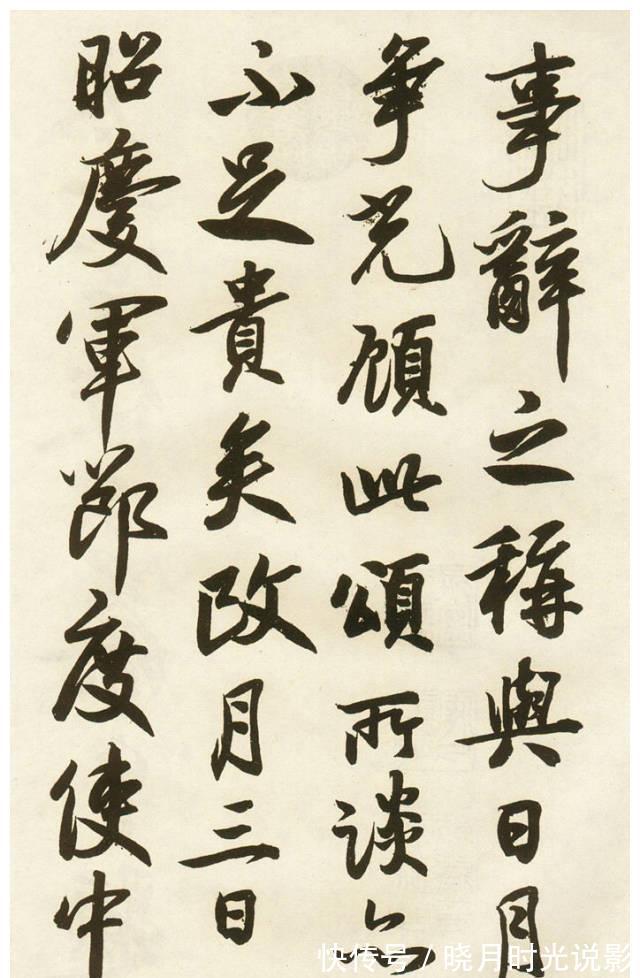 事辭之稱與日月
争光顧此頌所談
不足貴矣政月三日
昭慶軍節度使中
快传号/晓月时光说影